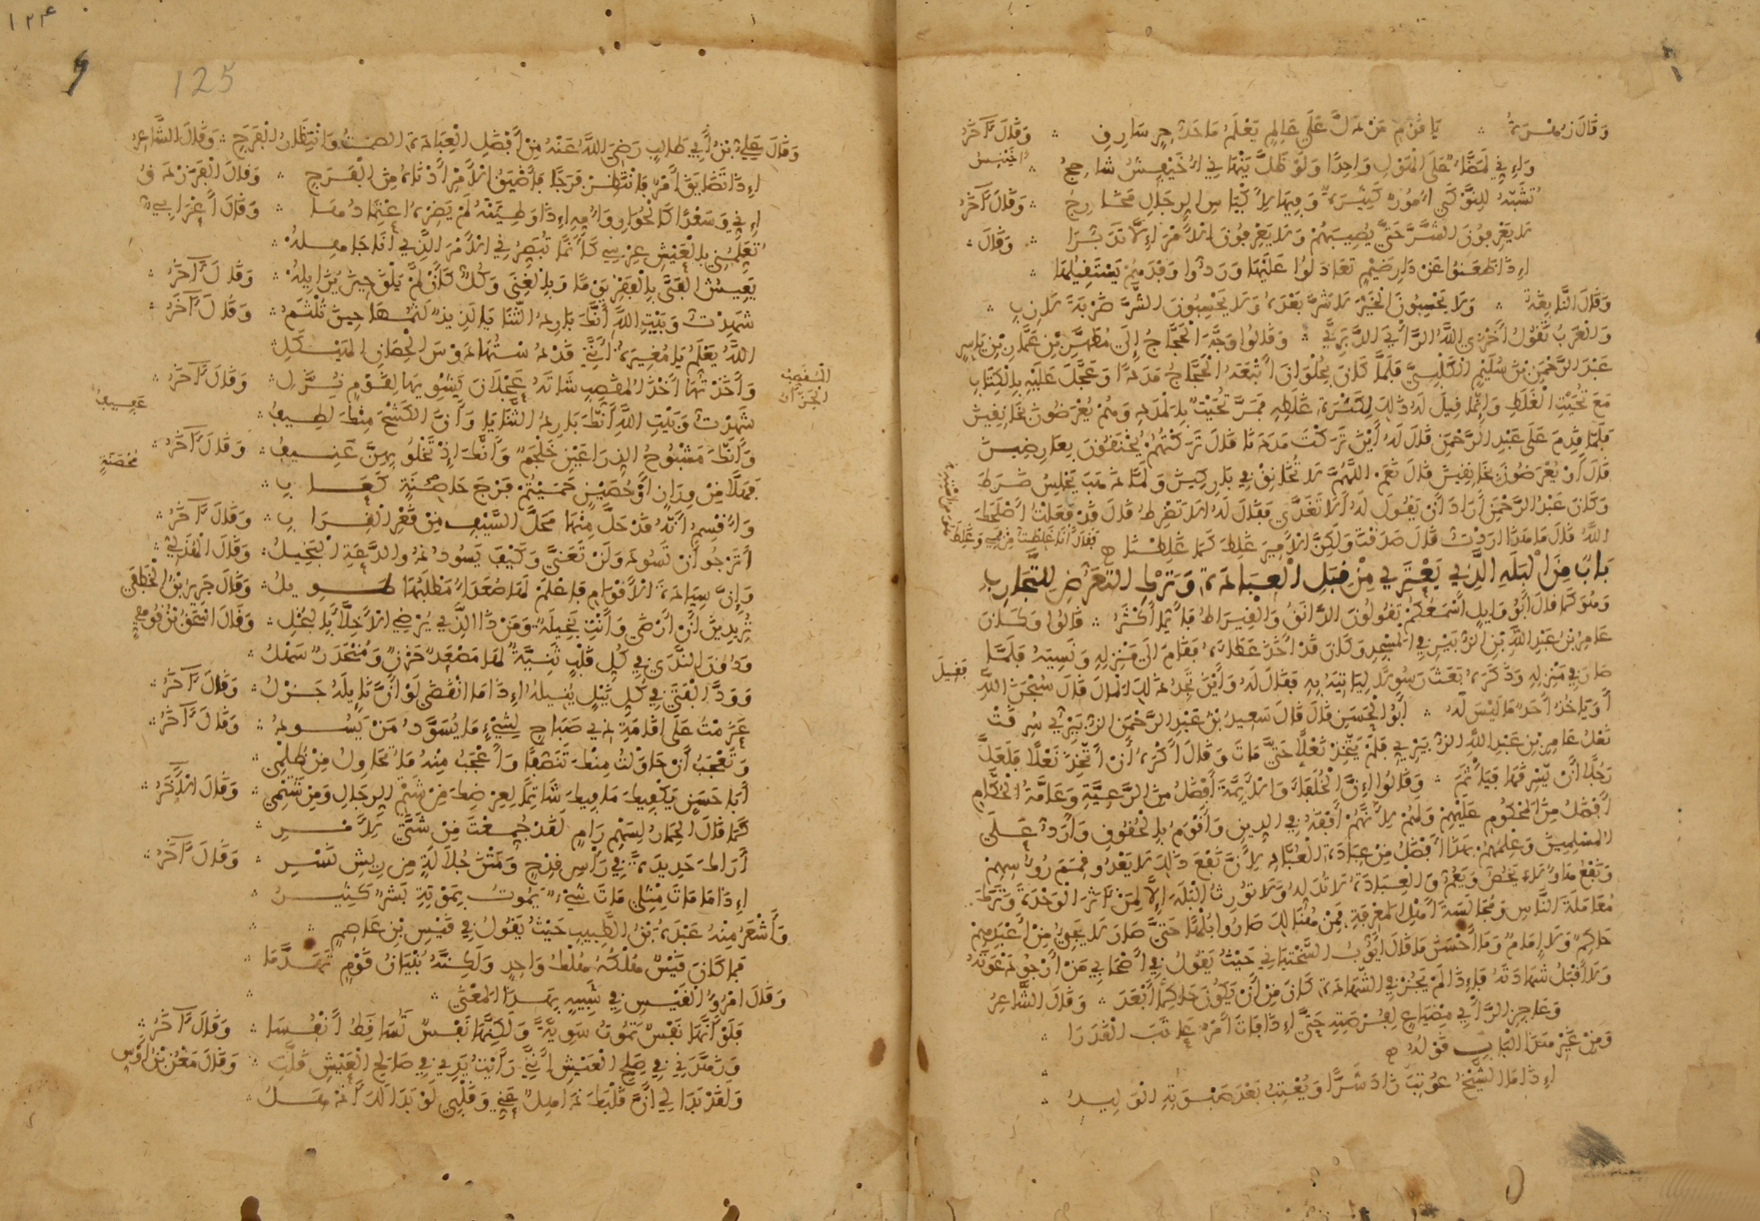 وَقَالَ
يَا قَوْمِ مَنْ دَلَّ عَلَى عَالِمٍ يَعْلَمُ مَا حَدُّ سَارِقِ ∴ وَقَالَ آخَرُ
وَقَالَ
وَقَالَ النَّابِغَةُ ∴ وَلَا يَحْسِبُونَ الْخَيْرَ لَا شَرَّ بَعْدَهُ وَلَا يَحْسِبُونَ الشَّرَّ ضَرْبَةَ لَازِبِ
وَالْعَرَبُ تَقُولُ أَخْزَى اللَّهُ الرَّأْيَ الدَّبَرِيَّ ∴ وَقَالُوا وَجَّهَ الْحَجَّاجُ إِلَى مُطَهَّرِ بْنِ عَمَّارِ بْنِ يَاسِرٍ
عَبْدَ الرَّحْمَنِ بْنَ سُلَيْمٍ الْكَلْبِيَّ فَلَمَّا كَانَ بِحُلْوَانَ أَتْبَعَهُ الْحَجَّاجُ مَدَدًا وَعَجَّلَ عَلَيْهِ بِالْكِتَابِ
مَعَ تُخَيْتِ الْغَلَطِ وَإِنَّمَا قِيلَ لَهُ ذَلِكَ لِكَثْرَةِ غَلَطِهِ فَمَرَّ تُخَيْتٌ بِالْمَدَدِ وَهُمْ يُعْرَضُونَ بِخَانِقِينَ
فَلَمَّا قَدِمَ عَلَى عَبْدِ الرَّحْمَنِ قَالَ لَهُ أَيْنَ تَرَكْتَ مَدَدَنَا قَالَ تَرَكْتُهُمْ يُخْنَقُونَ بِعَارِضِينَ
قَالَ أَوْ يُعْرَضُونَ بِخَانِقِينَ قَالَ نَعَمِ اللَّهُمَّ لَا تُخَانِقْ فِي بَارِكِينَ وَلَمَّا ذَهَبَ يَجْلِسُ ضَرَطَ
وَكَانَ عَبْدُ الرَّحْمَنِ أَرَادَ أَنْ يَقُولَ لَهُ أَلَا تَغَدَّى فَقَالَ لَهُ أَلَا تَضْرِطُ قَالَ قَدْ فَعَلْتُ أَصْلَحَكَ
اللَّهُ قَالَ مَا هَذَا أَرَدْتُ قَالَ صَدَقْتَ وَلَكِنَّ الْأَمِيرَ غَلِطَ كَمَا غَلِطْنَا
بَابٌ مِنَ الْبَلَهِ الَّذِي يَعْتَرِي مِنْ قِبَلِ الْعِبَادَةِ وَتَرْكِ التَّعَرُّضِ لِلتَّجَارِبِ
وَهُوَ كَمَا قَالَ أَبُو وَائِلٍ أَسْمَعُكُمْ تَقُولُونَ الدَّانَقُ وَالْقِيرَاطُ فَأَيُّمَا أَكْثَرُ ∴ قَالُوا وَكَانَ
عَامِرُ بْنُ عَبْدِ اللَّهِ بْنِ الزُّبَيْرِ فِي الْمَسْجِدِ وَكَانَ قَدْ أَخَذَ عَطَاءَهُ فَقَامَ إِلَى مَنْزِلِهِ وَنَسِيَهُ فَلَمَّا
صَارَ فِي مَنْزِلِهِ وَذَكَرَهُ بَعَثَ رَسُولًا لِيَأْتِيَهُ بِهِ فَقَالَ لَهُ وَأَيْنَ تَجِدُ ذَلِكَ الْمَالَ قَالَ سُبْحَانَ اللَّهِ
أَوَيَأْخُذُ أَحَدٌ مَا لَيْسَ لَهُ ∴ أَبُو الْحَسَنِ قَالَ قَالَ سَعِيدُ بْنُ عَبْدِ الرَّحْمَنِ الزُّبَيْرِيُّ سُرِقَتْ
نَعْلُ عَامِرِ بْنِ عَبْدِ اللَّهِ الزُّبَيْرِيِّ فَلَمْ يَتَّخِذْ نَعْلًا حَتَّى مَاتَ وَقَالَ أَكْرَهُ أَنْ أَتَّخِذَ نَعْلًا فَلَعَلَّ
رَجُلًا أَنْ يَسْرِقَهَا فَيَأْثَمَ ∴ وَقَالُوا إِنَّ الْخُلَفَاءَ وَالْأَئِمَّةَ أَفْضَلُ مِنَ الرَّعِيَّةِ وَعَامَّةُ الْحُكَّامِ
أَفْضَلُ مِنَ الْمَحْكُومِ عَلَيْهِمْ وَلَهُمْ لِأَنَّهُمْ أَفْقَهُ فِي الدِّينِ وَأَقْوَمُ بِالْحُقُوقِ وَأَرَدُّ عَلَى
الْمُسْلِمِينَ وَعِلْمُهُمْ بِهَذَا أَفْضَلُ مِنْ عِبَادَةِ الْعُبَّادِ لِأَنَّ نَفْعَ ذَلِكَ لَا يَعْدُو قِمَمَ رُءُوسِهِمْ
وَنَفْعُ هَؤُلَاءِ يَخُصُّ وَيَعُمُّ وَالْعِبَادَةُ لَا تُدَلِّهُ وَلَا تُورِثُ الْبَلَهَ إِلَّا لِمَنْ آثَرَ الْوَحْدَةَ وَتَرَكَ
مُعَامَلَةَ النَّاسِ وَمُجَالَسَةَ أَهْلِ الْمَعْرِفَةِ فَمِنْ هُنَالِكَ صَارُوا بُلْهًا حَتَّى صَارَ لَا يَجِيءُ مِنْ أَعْبَدِهِمْ
حَاكِمٌ وَلَا إِمَامٌ وَمَا أَحْسَنَ مَا قَالَ أَيُّوبُ السَّخْتِيَانِيُّ حَيْثُ يَقُولُ فِي أَصْحَابِي مَنْ أَرْجُو دَعْوَتَهُ
وَلَا أَقْبَلُ شَهَادَتَهُ فَإِذَا لَمْ يَجُزْ فِي الشَّهَادَةِ كَانَ مِنْ أَنْ يَكُونَ حَاكِمًا أَبْعَدَ ∴ وَقَالَ الشَّاعِرُ
وَعَاجِزُ الرَّأْيِ مِضْيَاعٌ لِفُرْصَتِهِ حَتَّى إِذَا فَاتَ أَمْرٌ عَاتَبَ الْقَدَرَا
وَمِنْ غَيْرِ هَذَا الْبَابِ قَوْلُهُ
إِذَا مَا الشَّيْخُ عُوتِبَ زَادَ شَرًّا وَيُعْتِبُ بَعْدَ صَبْوَتِهِ الْوَلِيدُ
١٢٤
125
وَقَالَ عَلِيُّ بْنُ أَبِي طَالِبٍ رَضِيَ اللَّهُ عَنْهُ مِنْ أَفْضَلِ الْعِبَادَةِ الصَّمْتُ وَانْتِظَارُ الْفَرَجِ ∴ وَقَالَ الشَّاعِرُ
إِذَا تَضَايَقَ أَمْرٌ فَانْتَظِرْ فَرَجًا فَأَضْيَقُ الْأَمْرِ أَدْنَاهُ مِنَ الْفَرَجِ ∴ وَقَالَ الْفَرَزْدَقُ
وَقَالَ أَعْرَابِيٌّ
يَعِيشُ الْفَتَى بِالْفَقْرِ يَوْمًا وَبِالْغِنَى وَكُلٌّ كَأَنْ لَمْ يَلْقَ حِينَ يُزَايِلُهُ ∴ وَقَالَ آخَرُ
شَهِدْتُ وَبَيْتِ اللَّهِ أَنَّكَ بَارِدُ الثَّنَايَا لَذِيذٌ لَثْمُهَا حِينَ تُلْثَمُ ∴ وَقَالَ آخَرُ
اللَّهُ يَعْلَمُ يَا مُغِيرَةُ أَنَّنِي قَدْ دُسْتُهَا دَوْسَ الْحِصَانِ الْهَيْكَلِ
وَأَخَذْتُهَا أَخْذَ الْمُقَصِّبِ شَاتَهُ عَجْلَانَ يَشْوِيهَا لِقَوْمٍ نُزَّلِ ∴ وَقَالَ آخَرُ
شَهِدْتُ وَبَيْتِ اللَّهِ أَنَّكَ بَارِدُ الثَّنَايَا وَأَنَّ الْكَشْحَ مِنْكَ لَطِيفُ
وَأَنَّكَ مَشْبُوحُ الذِّرَاعَيْنِ خَلْجَمٌ وَأَنَّكَ إِذْ تَخْلُو بِهِنَّ عَنِيفُ ∴ وَقَالَ آخَرُ
فَهَلَّا مِنْ وِزَانٍ أَوْ حُصَيْنٍ حَمَيْتُمْ فَرْجَ حَاصِنَةٍ كَعَابِ
وَأُقْسِمُ أَنَّهُ قَدْ حَلَّ مِنْهَا مَحَلَّ السَّيْفِ مِنْ قَعْرِ الْقِرَابِ ∴ وَقَالَ آخَرُ
أَتَرْجُو أَنْ تَسُودَ وَلَنْ تَعَنَّى وَكَيْفَ يَسُودُ ذُو الدَّعَةِ الْبَخِيلُ ∴ وَقَالَ الْهُذَلِيُّ
وَإِنَّ سِيَادَةَ الْأَقْوَامِ فَاعْلَمْ لَهَا صُعَدَاءُ مَطْلَبُهَا طَوِيلُ ∴ وَقَالَ جَرِيرُ بْنُ الْخَطَفَى
تُرِيدِينَ أَنْ أَرْضَى وَأَنْتِ بَخِيلَةٌ وَمَنْ ذَا الَّذِي يُرْضِي الْأَخِلَّاءَ بِالْبُخْلِ ∴ وَقَالَ
وَدُونَ النَّدَى فِي كُلِّ قَلْبٍ ثَنِيَّةٌ لَهَا مَصْعَدٌ حَزْنٌ وَمُنْحَدَرٌ سَهْلُ
وَوَدَّ الْفَتَى فِي كُلِّ نَيْلٍ يُنِيلُهُ إِذَا مَا انْقَضَى لَوْ أَنَّ نَائِلَهُ جَزْلُ ∴ وَقَالَ آخَرُ
عَزَمْتُ عَلَى إِقَامَةِ ذِي صَبَاحٍ لِشَيْءٍ مَا يُسَوَّدُ مَنْ يَسُودُ ∴ وَقَالَ آخَرُ
وَتَعْجَبُ أَنْ حَاوَلْتُ مِنْكَ تَنَصُّفًا وَأَعْجَبُ مِنْهُ مَا تُحَاوِلُ مِنْ ظُلْمِي
أَبَا حَسَنٍ يَكْفِيكَ مَا فِيكَ شَاتِمًا لِعِرْضِكَ مِنْ شَتْمِ الرِّجَالِ وَمِنْ شَتْمِي ∴ وَقَالَ الْآخَرُ
كَمَا قَالَ الْحِمَارُ لِسَهْمِ رَامٍ لَقَدْ جُمِعْتَ مِنْ شَتَّى لِأَمْرِ
أَرَاكَ حَدِيدَةً فِي رَأْسِ قِدْحٍ وَمَتْنَ جُلَالَةٍ مِنْ رِيشِ نَسْرِ ∴ وَقَالَ آخَرُ
إِذَا مَا مَاتَ مِثْلِي مَاتَ شَيْءٌ يَمُوتُ بِمَوْتِهِ بَشَرٌ كَثِيرُ
وَأَشْعَرُ مِنْهُ عَبْدَةُ بْنُ الطَّبِيبِ حَيْثُ يَقُولُ فِي قَيْسِ بْنِ عَاصِمٍ
فَمَا كَانَ قَيْسٌ هُلْكُهُ هُلْكُ وَاحِدٍ وَلَكِنَّهُ بُنْيَانُ قَوْمٍ تَهَدَّمَا
وَقَالَ امْرُؤُ الْقَيْسِ فِي شَبِيهٍ بِهَذَا الْمَعْنَى
فَلَوْ أَنَّهَا نَفْسٌ تَمُوتُ سَوِيَّةً وَلَكِنَّهَا نَفْسٌ تَسَاقَطُ أَنْفُسَا ∴ وَقَالَ آخَرُ
وَزَهَّدَنِي فِي صَالِحِ الْعَيْشِ أَنَّنِي رَأَيْتُ يَدِي فِي صَالِحِ الْعَيْشِ قَلَّتِ ∴ وَقَالَ مَعْنُ بْنُ أَوْسٍ
وَلَقَدْ بَدَا لِي أَنَّ قَلْبَكَ ذَاهِلٌ عَنِّي وَقَلْبِي لَوْ بَدَا لَكَ أَذْهَلُ